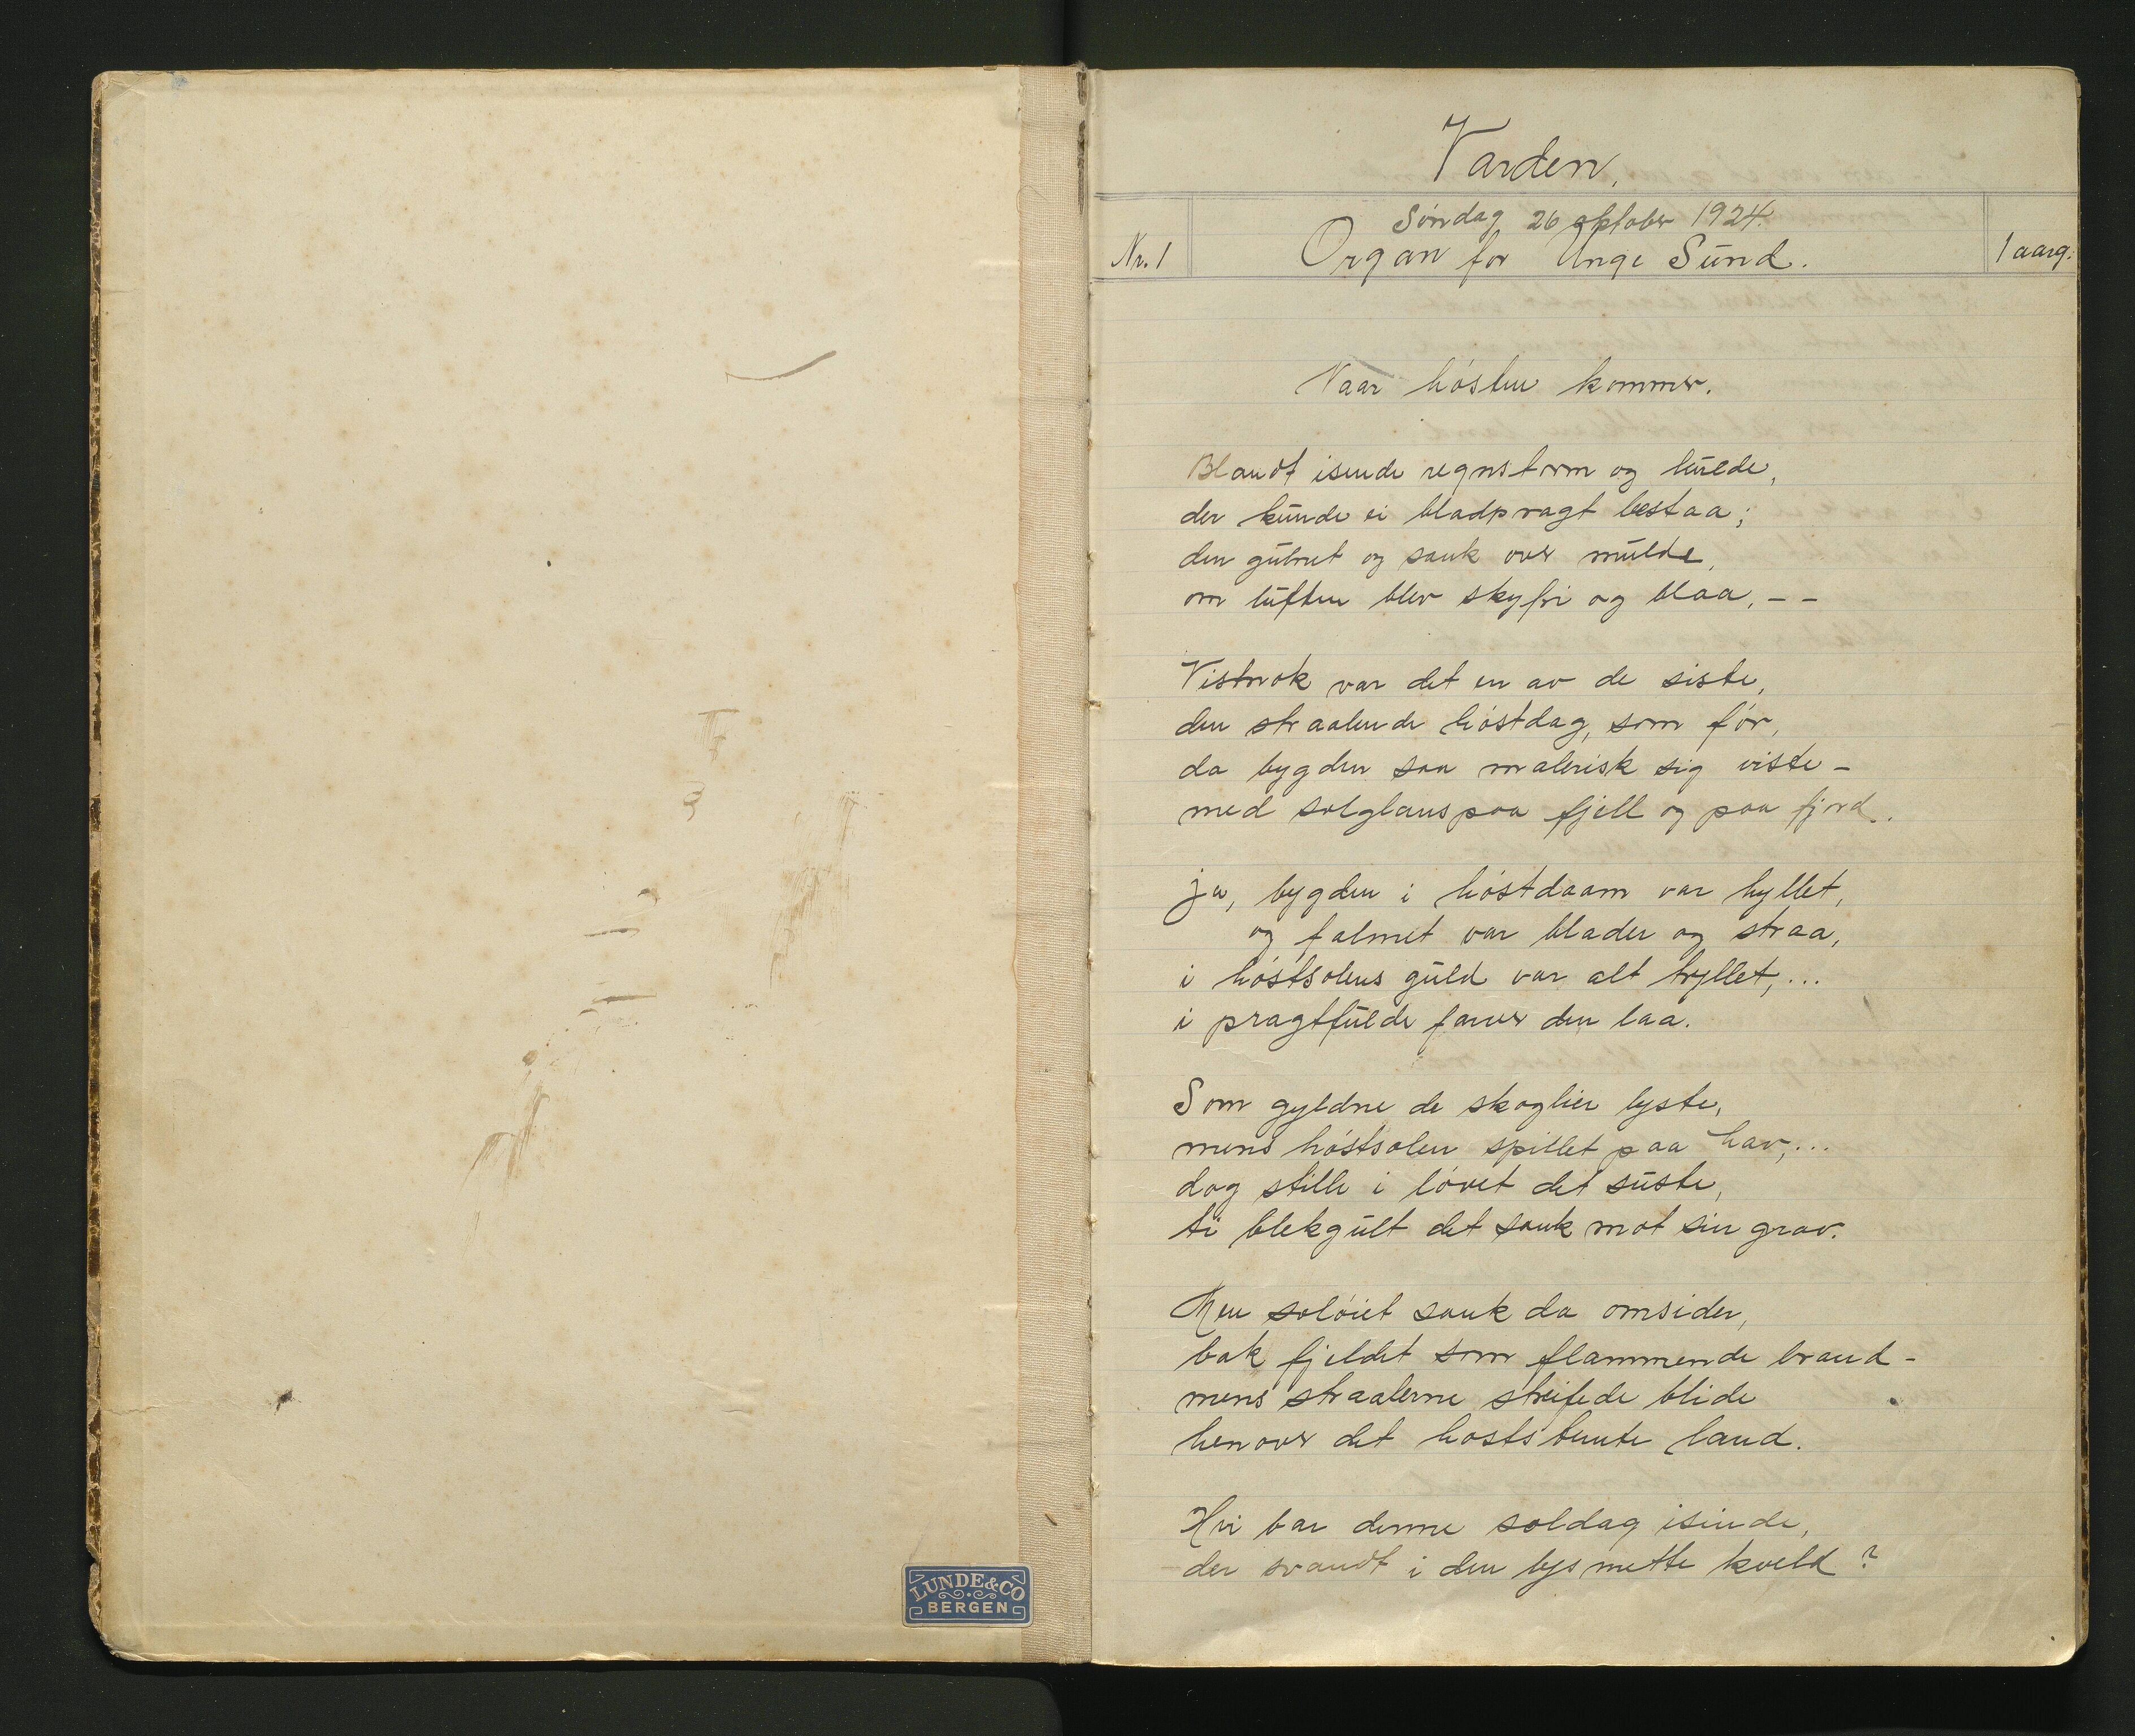 Varden.
Søndag 26 oktober 1924.
Nr. 1 Organ for Unge Sund. 1 aarg.
Naar høsten kommer.
Blandt isende regnstorm og kulde,
der kunde ei bladpragt bestaa;
den gulnet og sank over mulde,
om luften blev skyfri og blaa, - -
Vistnok var det en av de siste,
den straalende høstdag, som før,
da bygden saa malerisk sig viste -
med solglans paa fjell og paa fjord.
Ja, bygden i høstdaam var hyllet,
og falmet var blader og straa,
i høstsolens guld var alt tryllet, ...
i pragtfulde farver den laa.
Som gyldne de skoglier lyste,
mens høstsolen spillet paa hav, ...
dog stille i løvet det suste,
ti blekgult det sank mot sin grav.
Men soløiet sank da omsider,
bak fjeldet som flammende brand -
mens straalerne streifede blide
henover det høstsbunte land.
Hvi bar denne soldag isinde,
der svandt i den lysmette kveld?
LUNDE & CO
BERGEN